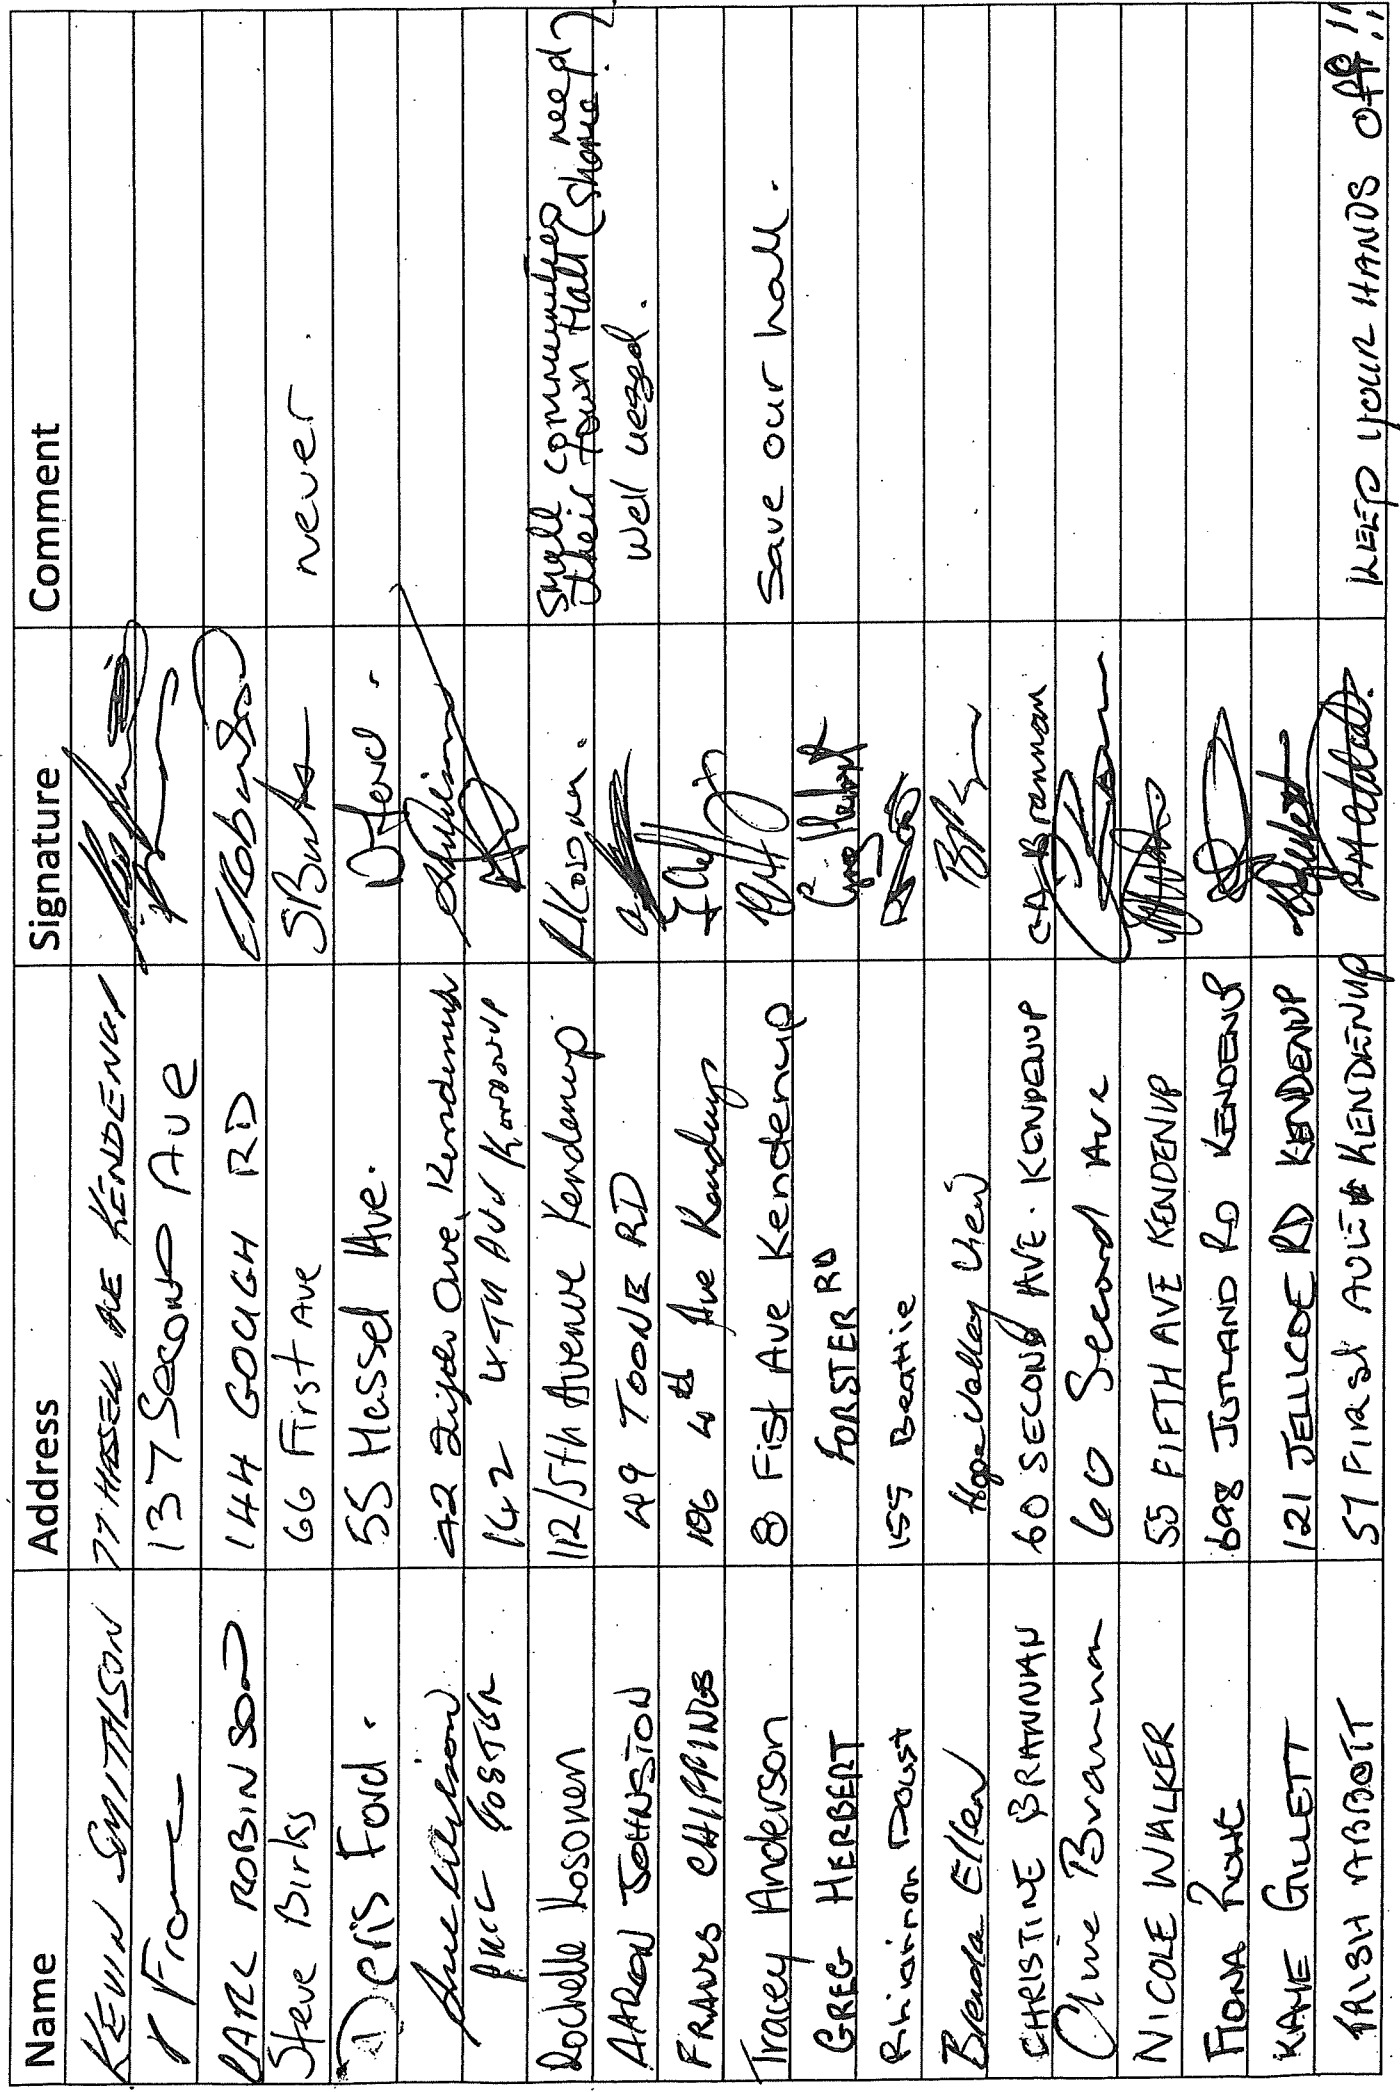 Name Address Signature Comment
KEVIN SMITHSON 77 HASSELL AVE KENDENUP
137 Second AVE
CARL ROBINSON 144 GOUGH RD
Steve Birks 66 First Ave SBirks never.
Doris Ford. 55 Hassel Ave. D Ford.
42 Ave Kendenup
FOSTER 142 4TH AVE KENDENUP
Rochelle Kosonen 112/5th Avenue Kendenup RKosonen. Small communities need
their town Hall (shame)
AARON JOHNSTON 49 TOONE RD well uesed.
FRANCES CHIPPINGS 106 4th Ave Kendenup
Tracey Anderson 8 Fist Ave Kendenup Save our hall.
GREG HERBERT FORSTER RD Greg Herbert
Rhiannon Doust 155 Beattie
Brenda Ellen Valley View
CHRISTINE BRANNAN 60 SECOND AVE. KENDENUP C A Brannan
Clive Brannan 60 Second Ave
NICOLE WALKER 55 FIFTH AVE KENDENUP
FIONA 698 JUTLAND RD KENDENUP
KAYE GILLETT 121 JELLICOE RD KENDENUP
TRISH ABBOTT 57 FIRST AVE KENDENUP KEEP YOUR HANDS OFF!!